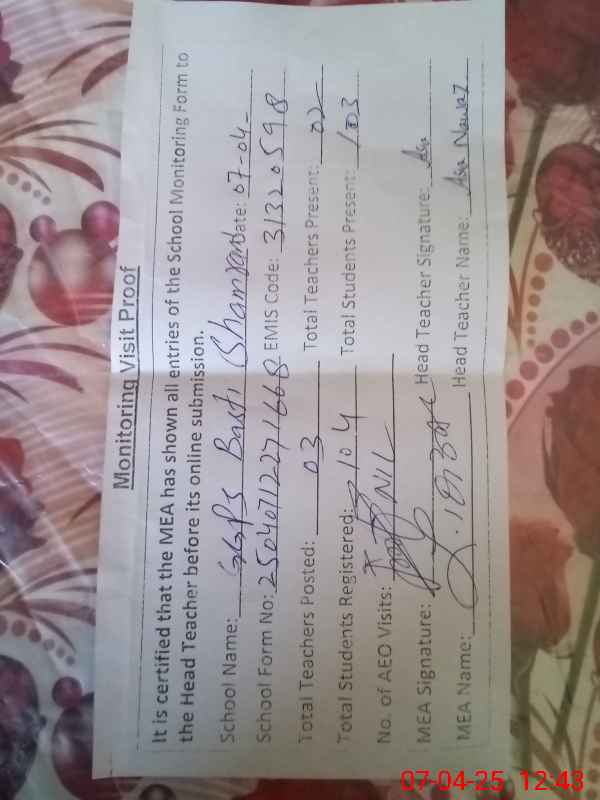 Monitoring Visit Proof
It is certified that the MEA has shown all entries of the School Monitoring Form to
the Head Teacher before its online submission.
School Name: GGPS Basti Date: 07-04-
School Form No: 250407122271668 EMIS Code: 31320598
Total Teachers Posted: 03 Total Teachers Present: 02
Total Students Registered: 104 Total Students Present: 103
No. of AEO Visits: NIL
MEA Signature: Head Teacher Signature: Asia
MEA Name: Head Teacher Name: Asia Nawaz
07-04-25 12:43